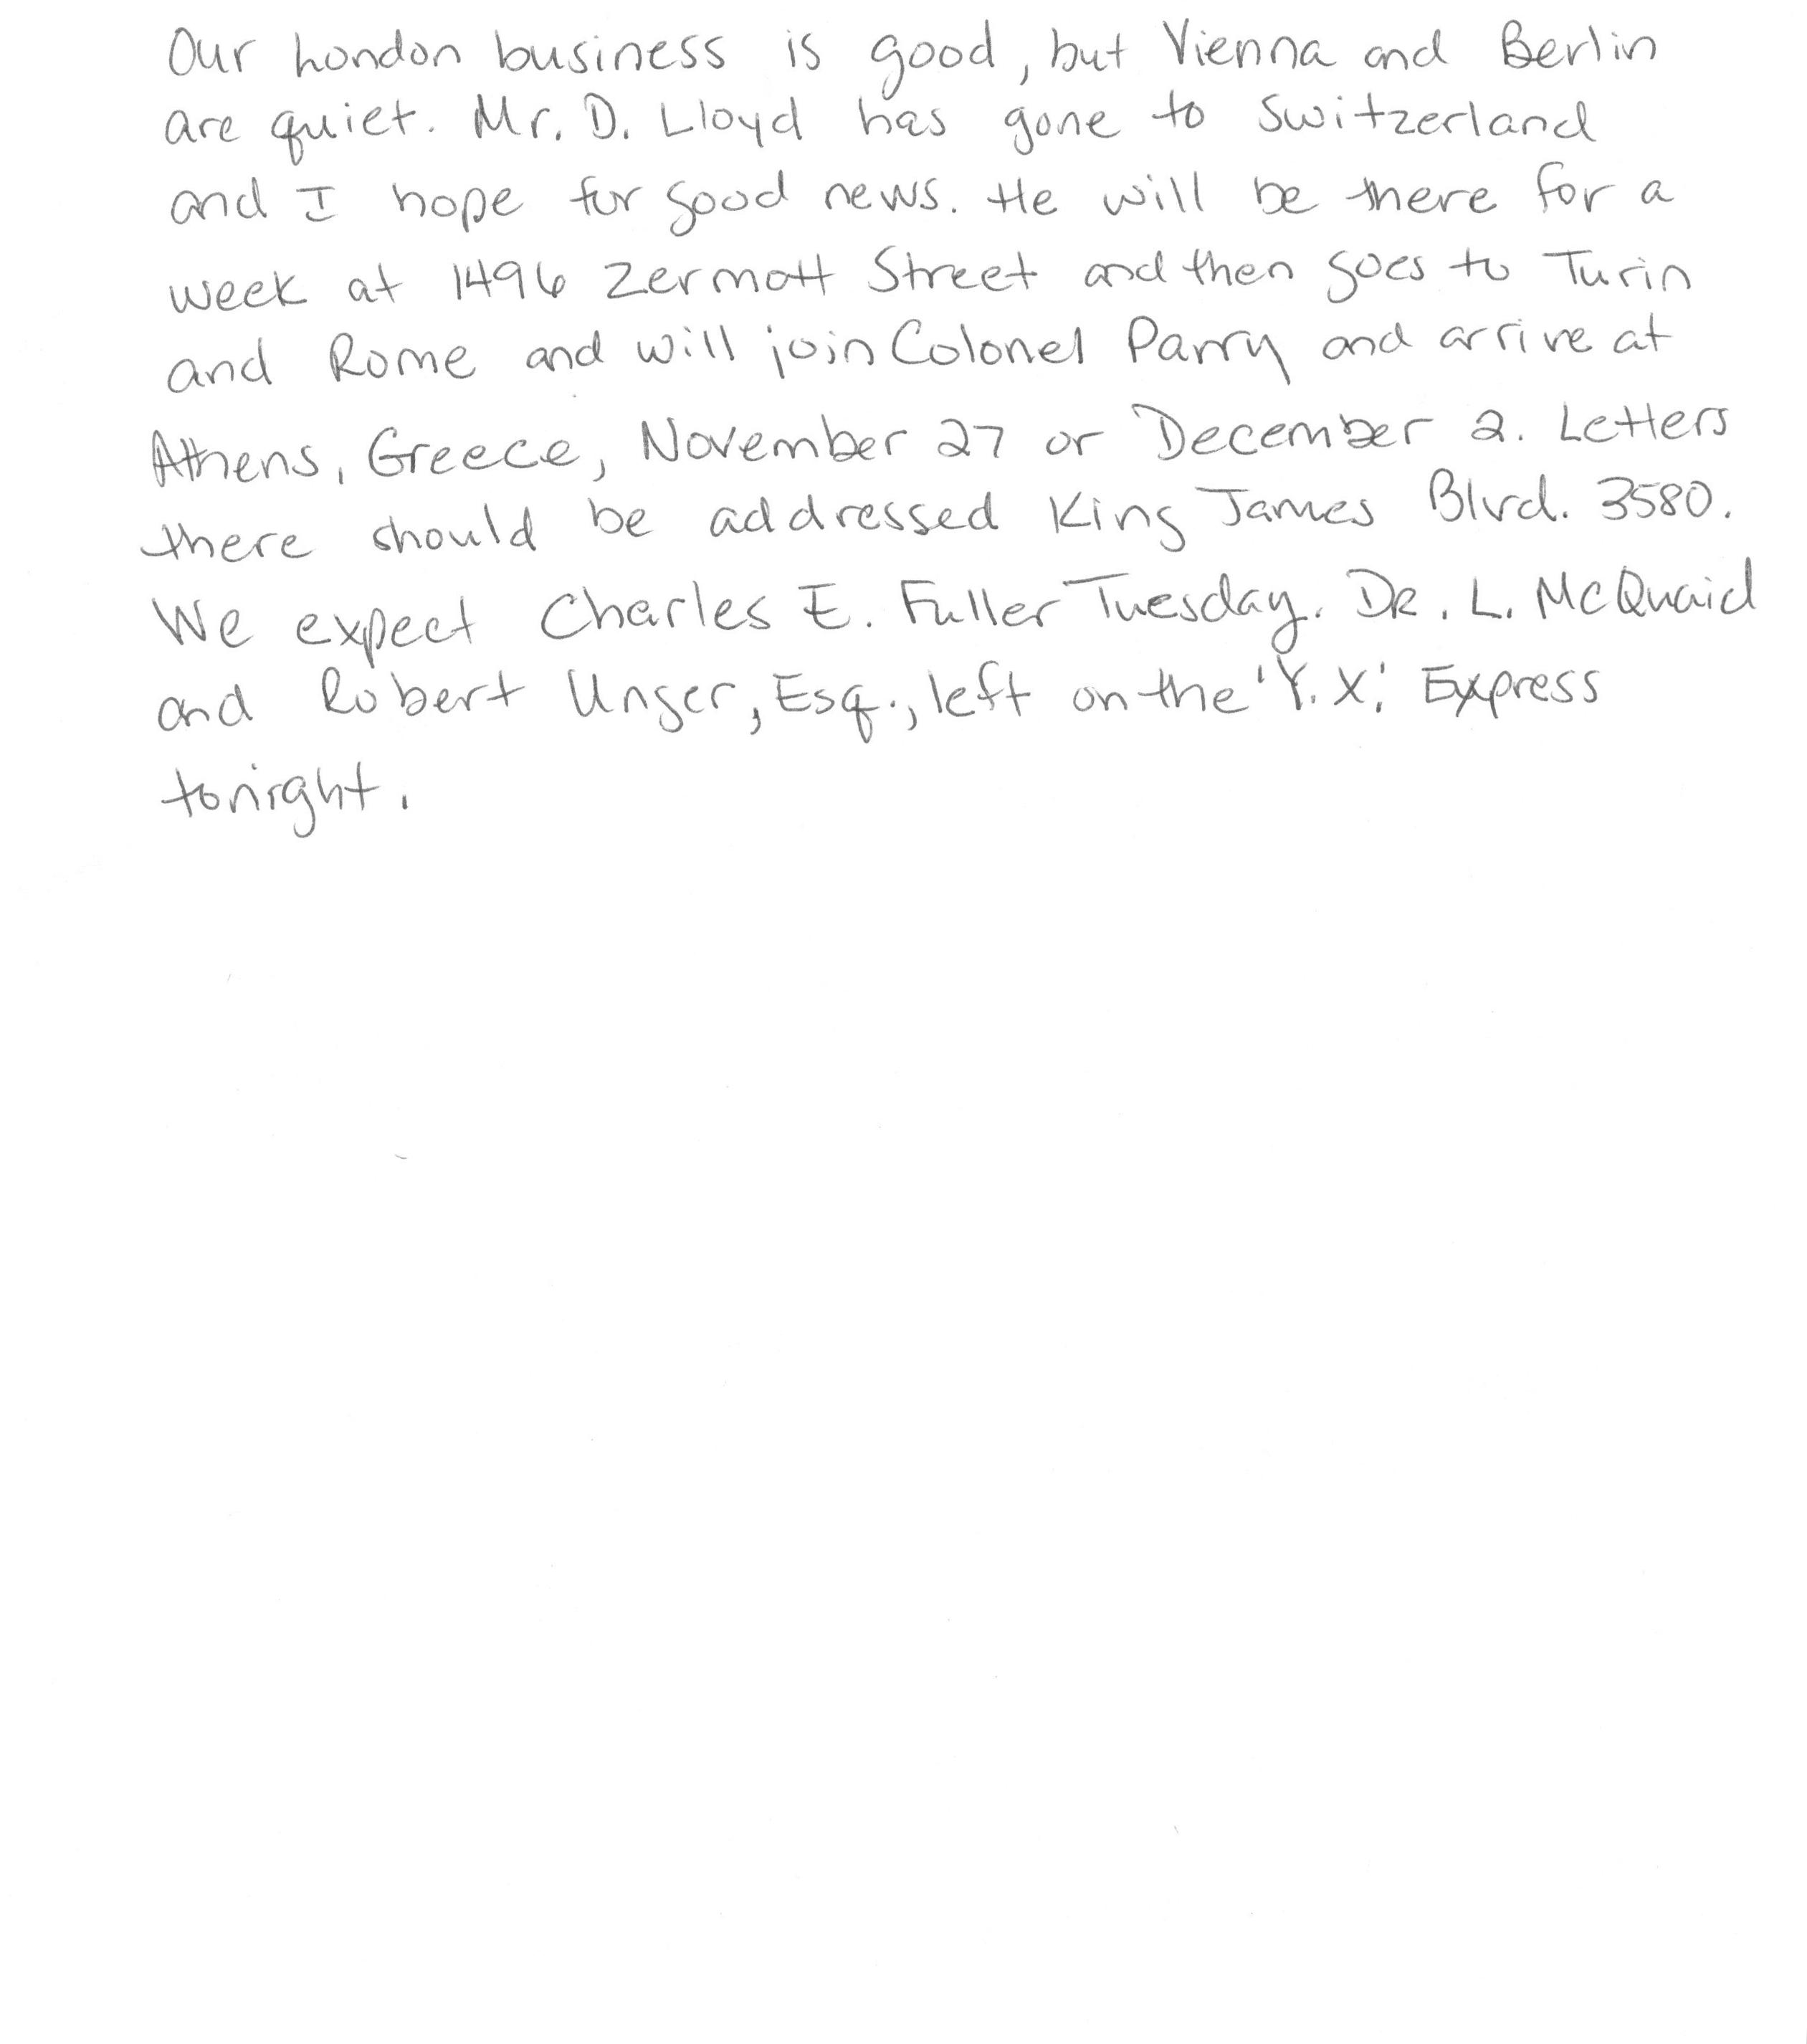 Our London business is good, but Vienna and Berlin
are quiet. Mr. D. Lloyd has gone to Switzerland
and I hope for good news. He will be there for a
week at 1496 Zermott Street and then goes to Turin
and Rome and will join Colonel Parry and arrive at
Athens, Greece, November 27 or December 2. Letters
there should be addressed King James Blvd. 3580.
We expect Charles E. Fuller Tuesday. DR. L. McQuaid
and Robert Unger, Esq., left on the 'Y.X.' Express
tonight.